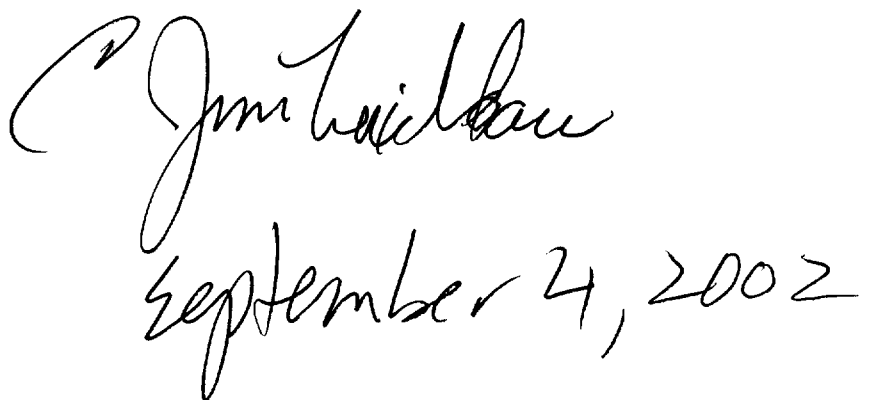 C Jim Laidlaw
September 4, 2002